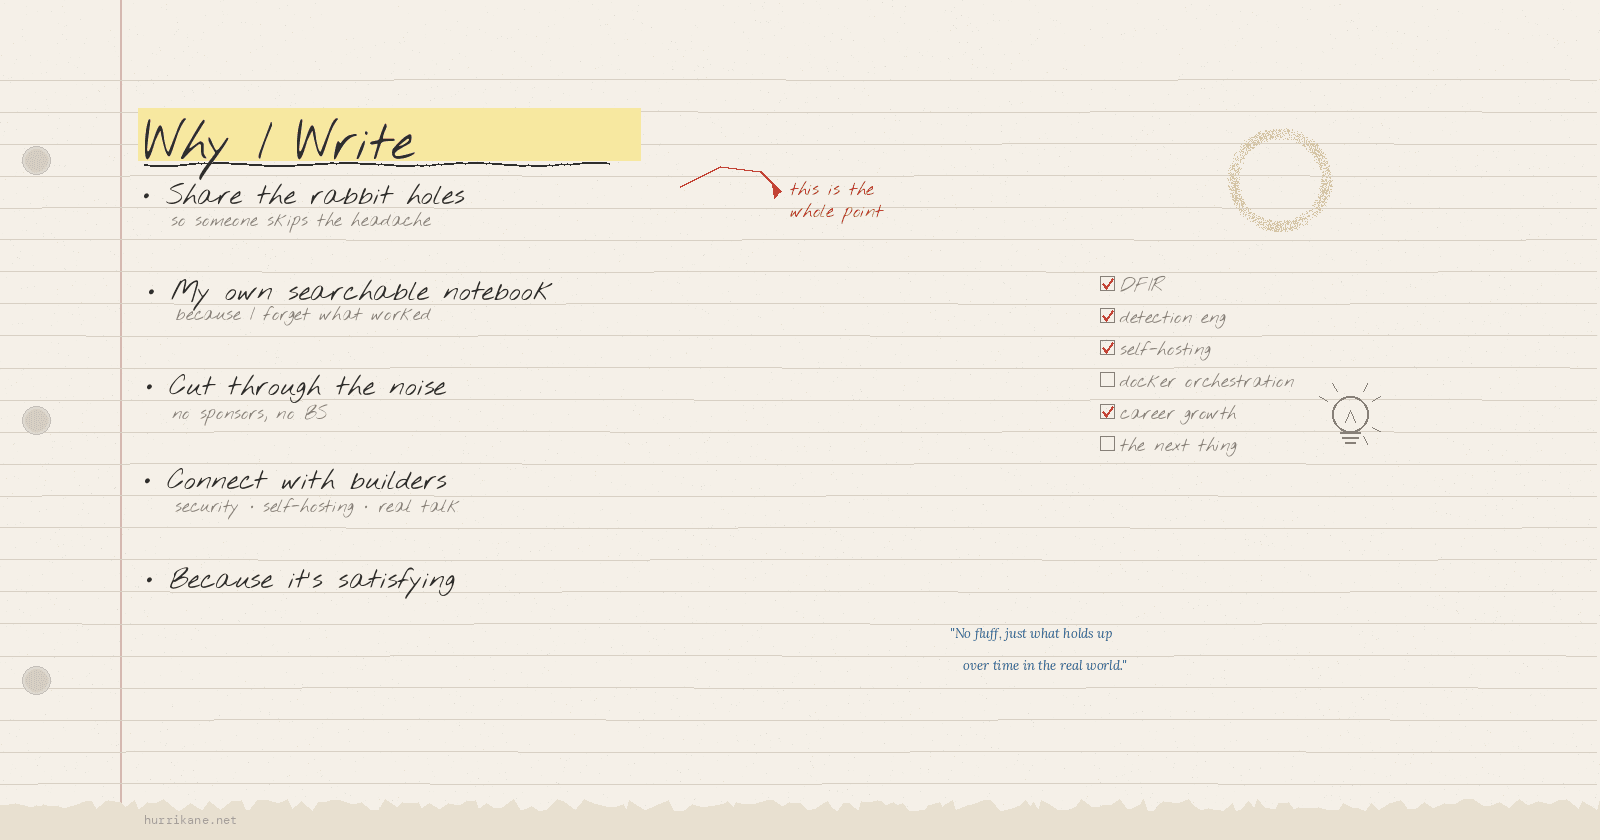 Why I Write
• Share the rabbit holes
so someone skips the headache
this is the
whole point
• My own searchable notebook
because I forget what worked
• Cut through the noise
no sponsors, no BS
• Connect with builders
security · self-hosting · real talk
• Because it's satisfying
DFIR
detection eng
self-hosting
docker orchestration
career growth
the next thing
"No fluff, just what holds up
over time in the real world."
hurrikane.net